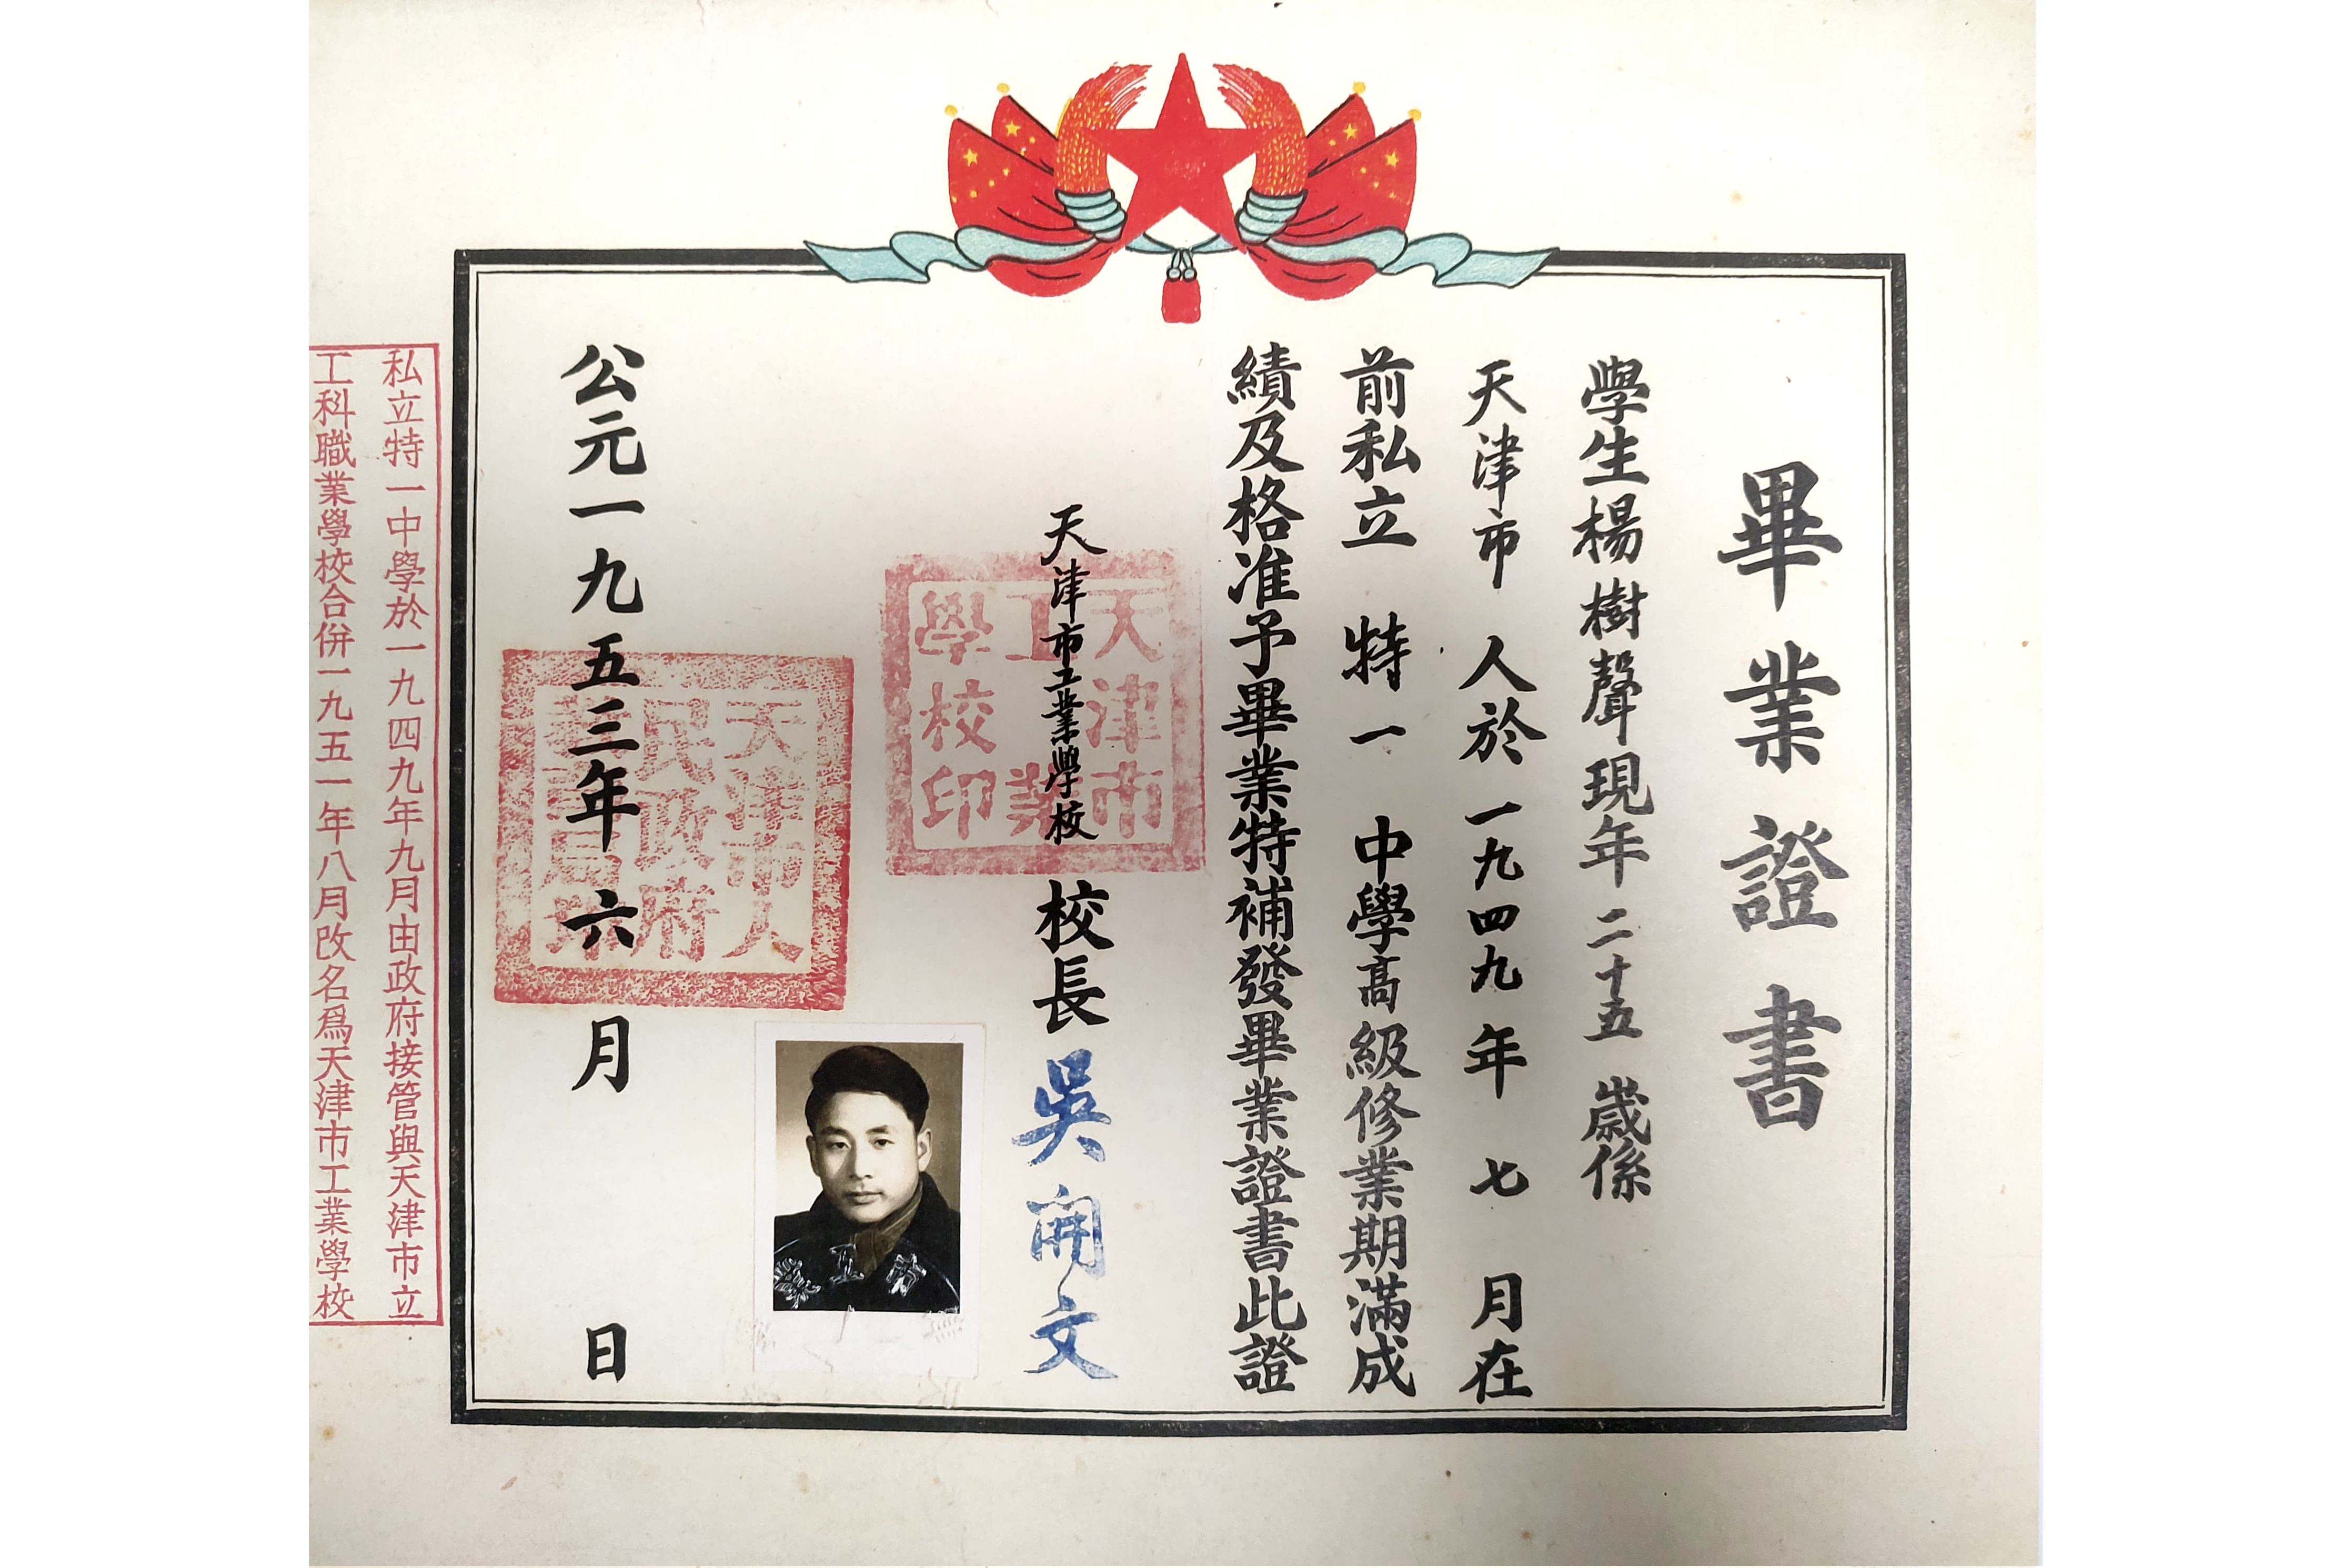 畢業證書
學生楊樹聲現年二十五歲係
天津市人於一九四九年七月在
前私立特一中學高級修業期滿成
績及格准予畢業特補發畢業證書此證
天津市工業學校校長吳開文
天津市
工業
學校印
公元一九五三年六月日
天津市人
民政府
私立特一中學於一九四九年九月由政府接管與天津市立
工科職業學校合併一九五一年八月改名爲天津市工業學校